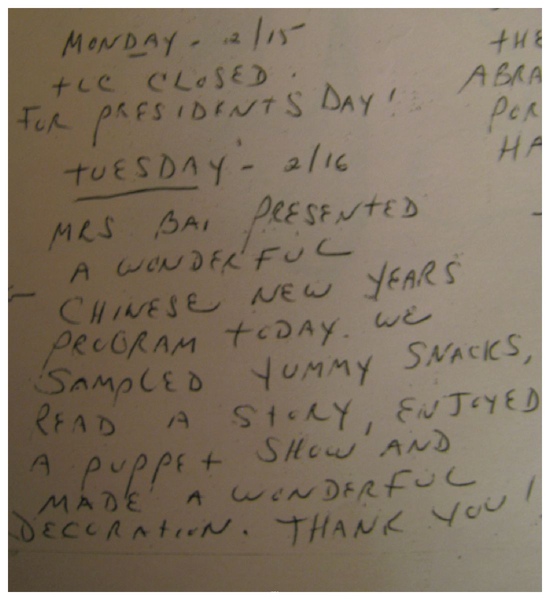 MONDAY - 2/15
TLC CLOSED.
FOR PRESIDENTS DAY!
TUESDAY - 2/16
MRS BAI PRESENTED
A WONDERFUL
CHINESE NEW YEARS
PROGRAM TODAY. WE
SAMPLED YUMMY SNACKS,
READ A STORY, ENJOYED
A PUPPET SHOW AND
MADE A WONDERFUL
DECORATION. THANK YOU!
THE
ABRA
POR
HA